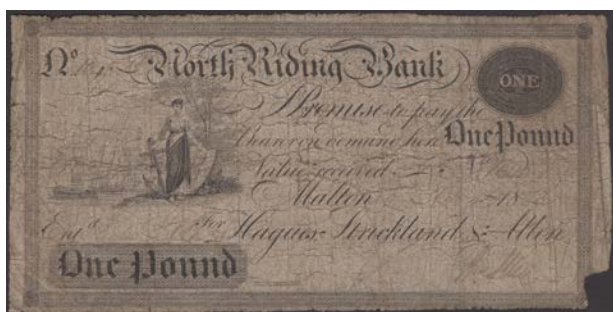 No North Riding Bank
ONE
I Promise to pay the
Bearer on demand here One Pound
Value received
Malton 18
Entd For Hagues Strickland & Allen
One Pound